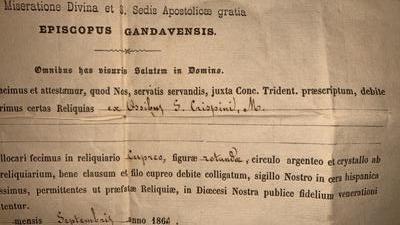 Miseratione Divina et S. Sedis Apostolicæ gratia
EPISCOPUS GANDAVENSIS.
Omnibus has visuris Salutem in Domino.
acimus et attestamur, quod Nos, servatis servandis, juxta Conc. Trident. præscriptum, debite
rimus certas Reliquias ex Ossibus S. Crispini, M.
llocari fecimus in reliquario Cupreo, figuræ rotundæ, circulo argenteo et crystallo ab
reliquiarium, bene clausum et filo cupreo debite colligatum, sigillo Nostro in cera hispanica
ssimus, permittentes ut præfatæ Reliquiæ, in Diœcesi Nostra publice fidelium venerationi
tentur.
mensis Septembris anno